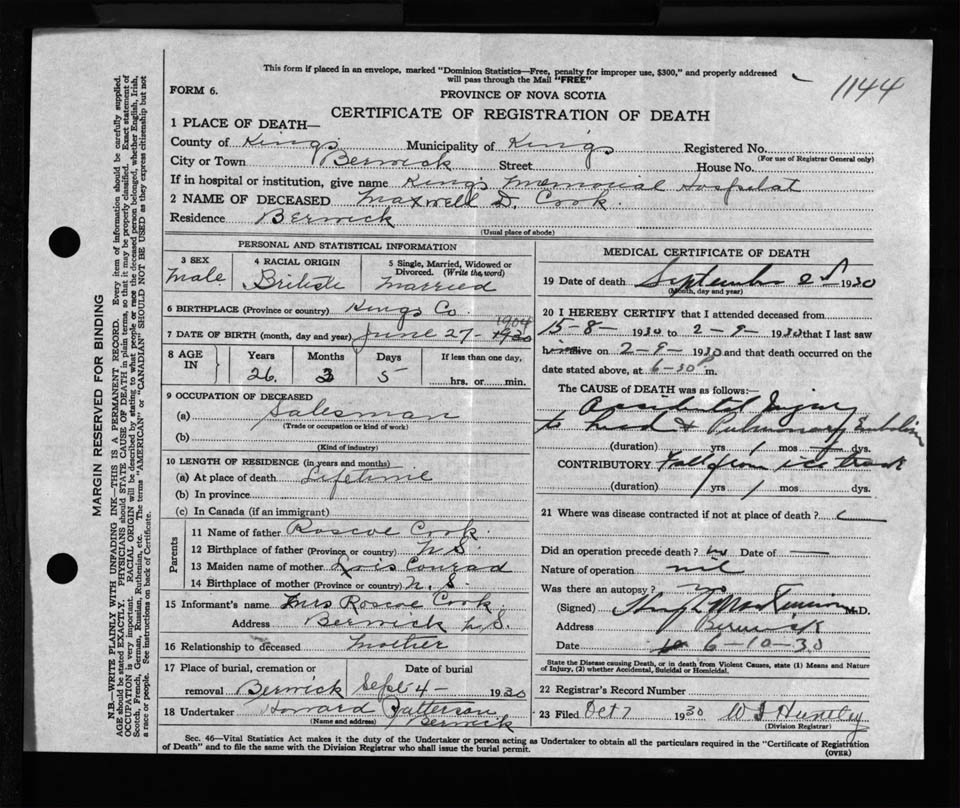 This form if placed in an envelope, marked "Dominion Statistics—Free, penalty for improper use, $300," and properly addressed
will pass through the Mail "FREE"
1144
FORM 6.
PROVINCE OF NOVA SCOTIA
CERTIFICATE OF REGISTRATION OF DEATH
1 PLACE OF DEATH—
County of King's Municipality of King's Registered No.
(For use of Registrar General only)
City or Town Berwick Street House No.
If in hospital or institution, give name King's Memorial Hospital
2 NAME OF DECEASED Maxwell D. Cook.
Residence Berwick
(Usual place of abode)
PERSONAL AND STATISTICAL INFORMATION
3 SEX
Male
4 RACIAL ORIGIN
British
5 Single, Married, Widowed or
Divorced. (Write the word)
Married
6 BIRTHPLACE (Province or country) Kings Co.
7 DATE OF BIRTH (month, day and year) June 27 - 1930 1904
8 AGE IN
Years Months Days If less than one day,
26. 3 5 hrs. or min.
9 OCCUPATION OF DECEASED
(a) Salesman
(Trade or occupation or kind of work)
(b)
(Kind of industry)
10 LENGTH OF RESIDENCE (in years and months)
(a) At place of death Lifetime
(b) In province
(c) In Canada (if an immigrant)
Parents
11 Name of father Roscoe Cook.
12 Birthplace of father (Province or country) N.S.
13 Maiden name of mother Lois Conrad
14 Birthplace of mother (Province or country) N.S.
15 Informant's name Mrs Roscoe Cook
Address Berwick N.S.
16 Relationship to deceased Mother
17 Place of burial, cremation or
removal Berwick
Date of burial
Sept 4 - 1930
18 Undertaker Howard Patterson
(Name and address) Berwick
MEDICAL CERTIFICATE OF DEATH
19 Date of death September 2d 1930
(Month, day and year)
20 I HEREBY CERTIFY that I attended deceased from
15-8- 1930 to 2-9- 1930 that I last saw
h im alive on 2-9- 1930 and that death occurred on the
date stated above, at 6-30 P m.
The CAUSE of DEATH was as follows:—
Accidental Injury
to head & Pulmonary Embolism
(duration) yrs. mos. dys.
CONTRIBUTORY Fall from ice truck
(duration) yrs. mos. dys.
21 Where was disease contracted if not at place of death?
Did an operation precede death? no Date of —
Nature of operation nil
Was there an autopsy?
(Signed) M.D.
Address Berwick
Date 6-10-30
State the Disease causing Death, or in death from Violent Causes, state (1) Means and Nature
of Injury, (2) whether Accidental, Suicidal or Homicidal.
22 Registrar's Record Number
23 Filed Oct 7 1930 W J Huntly
(Division Registrar)
Sec. 46—Vital Statistics Act makes it the duty of the Undertaker or person acting as Undertaker to obtain all the particulars required in the "Certificate of Registration
of Death" and to file the same with the Division Registrar who shall issue the burial permit.
(OVER)
MARGIN RESERVED FOR BINDING
N.B.—WRITE PLAINLY WITH UNFADING INK—THIS IS A PERMANENT RECORD. Every item of information should be carefully supplied.
AGE should be stated EXACTLY. PHYSICIANS should STATE CAUSE OF DEATH in plain terms, so that it may be properly classified. Exact statement of
OCCUPATION is very important. RACIAL ORIGIN will be described by stating to what people or race the deceased person belonged, whether English, Irish,
Scotch, French, German, Russian, Ruthenian, etc. The terms "AMERICAN" or "CANADIAN" SHOULD NOT BE USED as they express citizenship but not
a race or people. See instructions on back of Certificate.